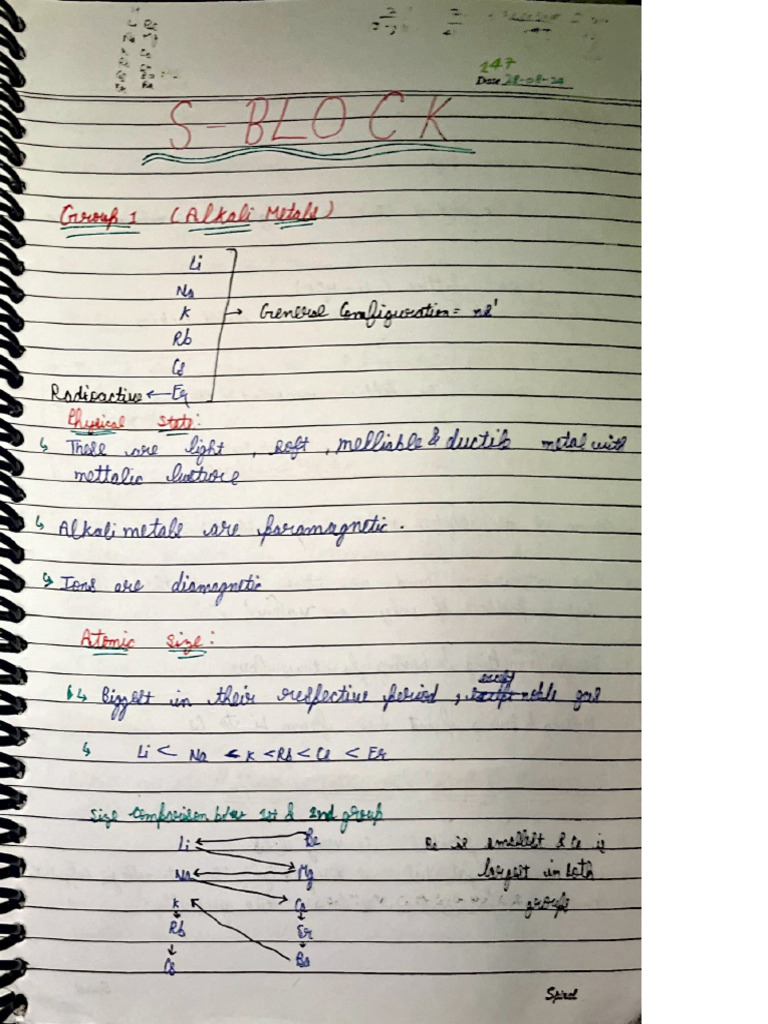 247
Date 28-08-20
S-BLOCK
Group 1 (Alkali Metals)
Li
Na
K → General Configuration = ns¹
Rb
Cs
Radioactive ← Er
Physical State:
↳ These are light, soft, melliable & ductile metal with
mettalic lusture
↳ Alkali metals are paramagnetic.
↳ Ions are diamagnetic
Atomic size:
↳ Biggest in their respective period, except noble gas
↳ Li < Na < K < Rb < Cs < Er
Size comparison b/w 1st & 2nd group
Li Be Be is smallest & Cs is
Na Mg largest in both
K Ca groups
Rb Sr
Cs Ba
Spiral